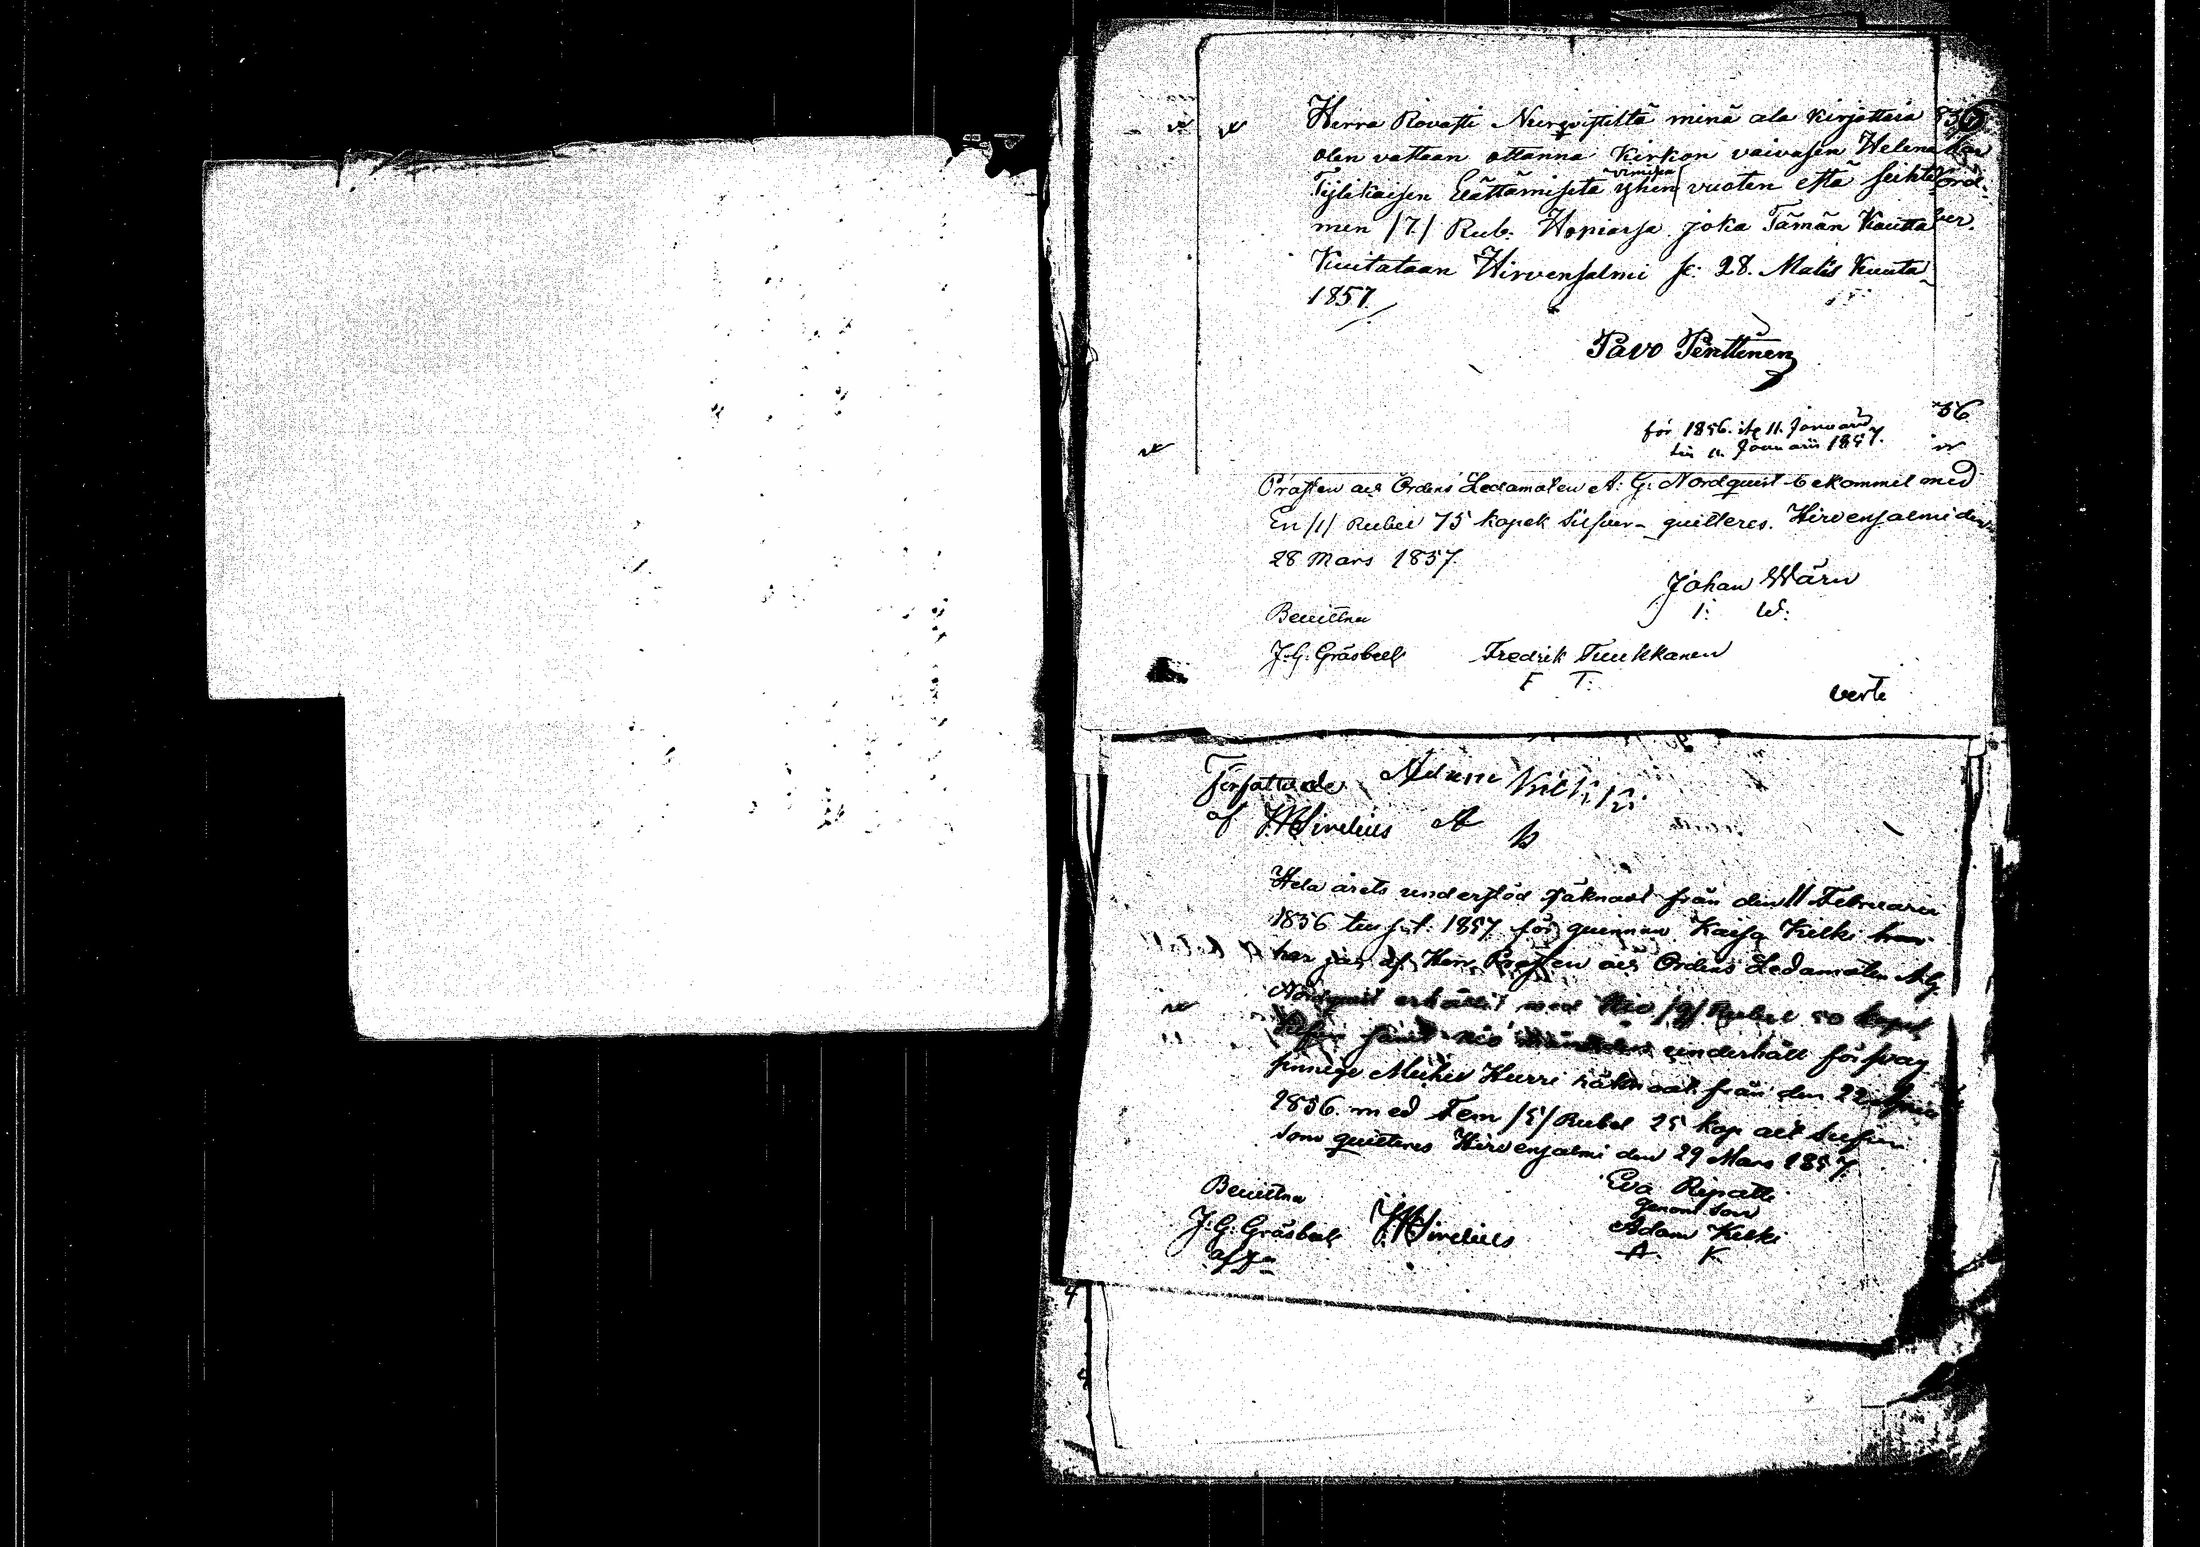 Herra Rovasti Nurqvistiltä minä ala kirjottaia
olen vattaan ottanna Kirkon vaivasen Helena
Tylikaisen Elättämisstä yhen viimisen vuoten että seihte
men /7/ Rub. Hopiassa joka Tämän Kautta
Kuitataan Hirvensalmi se: 28. Malis Kuuta
1857.
Pavo Penttinen
för 1856. ifr 11. Januari
till 11 Januarii 1857.
Prosten och Ordens Ledamoten A: G: Nordquist bekommit med
En /1/ Rubel 75 kopek Silfver quitteres. Hirvensalmi den
28 Mars 1857.
Johan Wärn
I: W:
Bevittna
J. G. Gräsbeck Fredrik Tuukkanen
F T:
verte
Författade Adam Kilkki
af Sirelius A K
Hela årets understöd räknadt från den 11 Februarii
1856 till s. d. 1857 för quinnan Kaisa Kilki
har jag af Herr Prosten och Ordens Ledamoten A. G.
Nordquist erhållit med Nio /9/ Rubel 50 kopek
Silfver samt nio underhåll för svag
sinnige Michel Hurri räknadt från den 22
1856. med Fem /5/ Rubel 25 kop allt Silfver
som quitteres Hirvensalmi den 29 Mars 1857.
Bevittna Eva Ripatti
genom son
J: G: Gräsbeck Sirelius Adam Kilki
A. K.